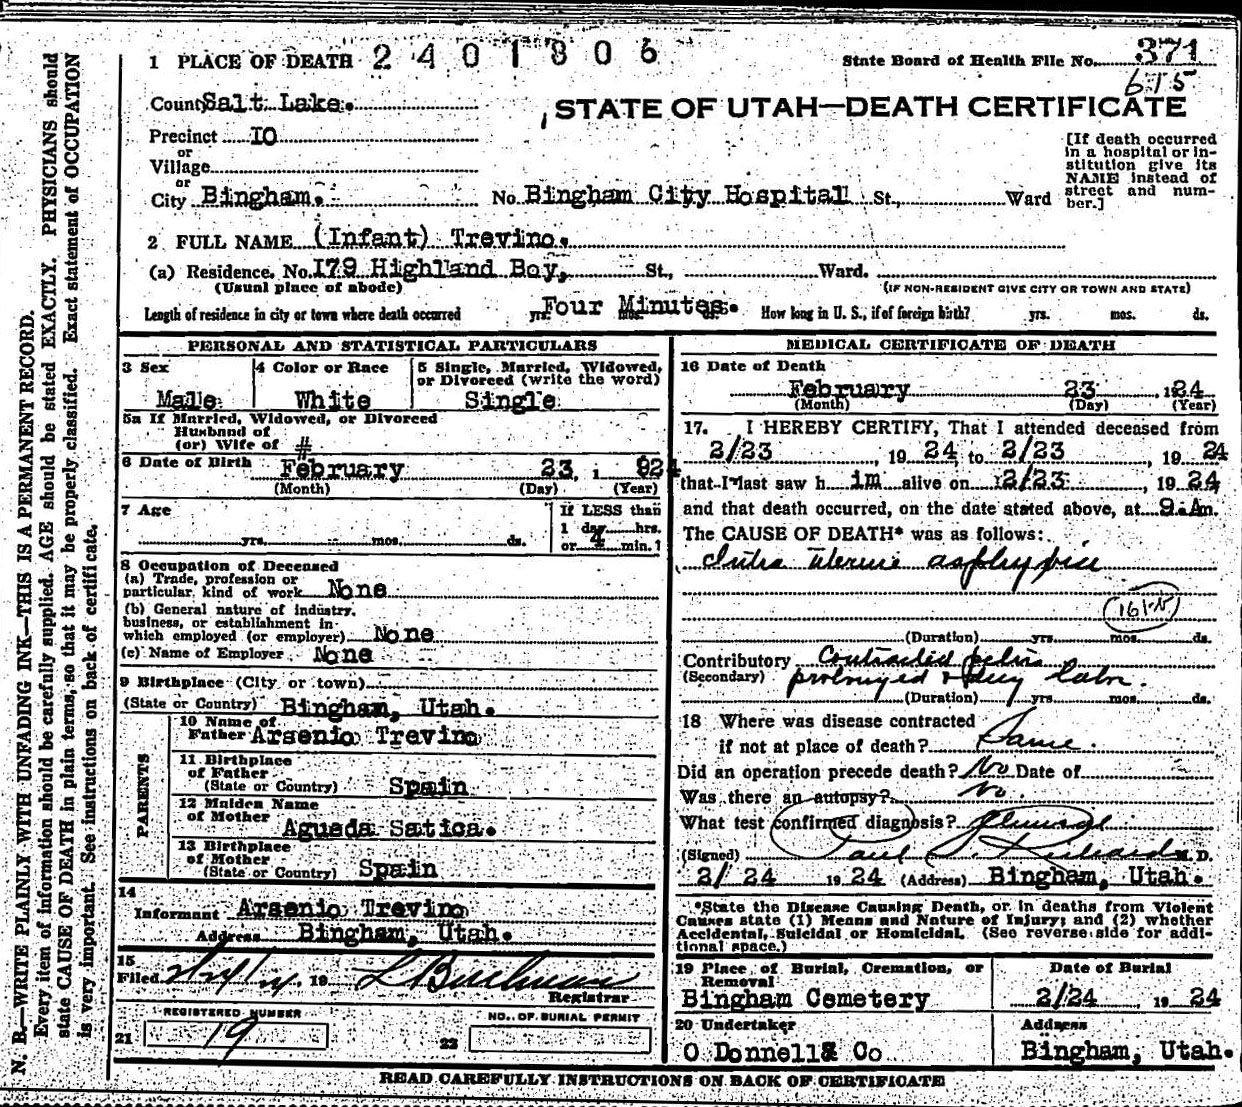 1 PLACE OF DEATH 2401306
State Board of Health File No. 371
615
County Salt Lake.
STATE OF UTAH—DEATH CERTIFICATE
Precinct 10
or
Village
or
City Bingham. No Bingham City Hospital St., Ward
[If death occurred
in a hospital or in-
stitution give its
NAME instead of
street and num-
ber.]
2 FULL NAME (Infant) Trevino.
(a) Residence. No. 179 Highland Boy, St., Ward.
(Usual place of abode) (IF NON-RESIDENT GIVE CITY OR TOWN AND STATE)
Length of residence in city or town where death occurred yrs. Four Minutes. mos. ds. How long in U. S., if of foreign birth? yrs. mos. ds.
PERSONAL AND STATISTICAL PARTICULARS
3 Sex 4 Color or Race 5 Single, Married, Widowed,
or Divorced (write the word)
Male White Single
5a If Married, Widowed, or Divorced
Husband of
(or) Wife of #
6 Date of Birth February 23, 1924
(Month) (Day) (Year)
7 Age If LESS than
1 day hrs.
yrs. mos. ds. or 4 min.?
8 Occupation of Deceased
(a) Trade, profession or
particular, kind of work None
(b) General nature of industry,
business, or establishment in
which employed (or employer) None
(c) Name of Employer None
9 Birthplace (City or town)
(State or Country) Bingham, Utah.
PARENTS
10 Name of
Father Arsenio Trevino
11 Birthplace
of Father
(State or Country) Spain
12 Maiden Name
of Mother
Agueda Satica.
13 Birthplace
of Mother
(State or Country) Spain
14
Informant Arsenio Trevino
Address Bingham, Utah.
15
Filed 19
Registrar
REGISTERED NUMBER NO. OF BURIAL PERMIT
21 19 22
MEDICAL CERTIFICATE OF DEATH
16 Date of Death
February 23 1924
(Month) (Day) (Year)
17. I HEREBY CERTIFY, That I attended deceased from
2/23, 1924, to 2/23, 1924
that I last saw him alive on 2/23, 1924,
and that death occurred, on the date stated above, at 9.Am.
The CAUSE OF DEATH* was as follows:
Intra Uterine asphyxia
(Duration) yrs. mos. ds.
Contributory Contracted pelvis
(Secondary) prolonged & dry labor.
(Duration) yrs. mos. ds.
18 Where was disease contracted
if not at place of death? Same.
Did an operation precede death? No Date of
Was there an autopsy? No.
What test confirmed diagnosis?
(Signed) Paul S. Richards M. D.
2/ 24 1924 (Address) Bingham, Utah.
*State the Disease Causing Death, or in deaths from Violent
Causes state (1) Means and Nature of Injury; and (2) whether
Accidental, Suicidal or Homicidal. (See reverse side for addi-
tional space.)
19 Place of Burial, Cremation, or
Removal
Bingham Cemetery
Date of Burial
2/24, 1924
20 Undertaker
O Donnell& Co
Address
Bingham, Utah.
READ CAREFULLY INSTRUCTIONS ON BACK OF CERTIFICATE
N. B.—WRITE PLAINLY WITH UNFADING INK—THIS IS A PERMANENT RECORD.
Every item of information should be carefully supplied. AGE should be stated EXACTLY. PHYSICIANS should
state CAUSE OF DEATH in plain terms, so that it may be properly classified. Exact statement of OCCUPATION
is very important. See instructions on back of certificate.